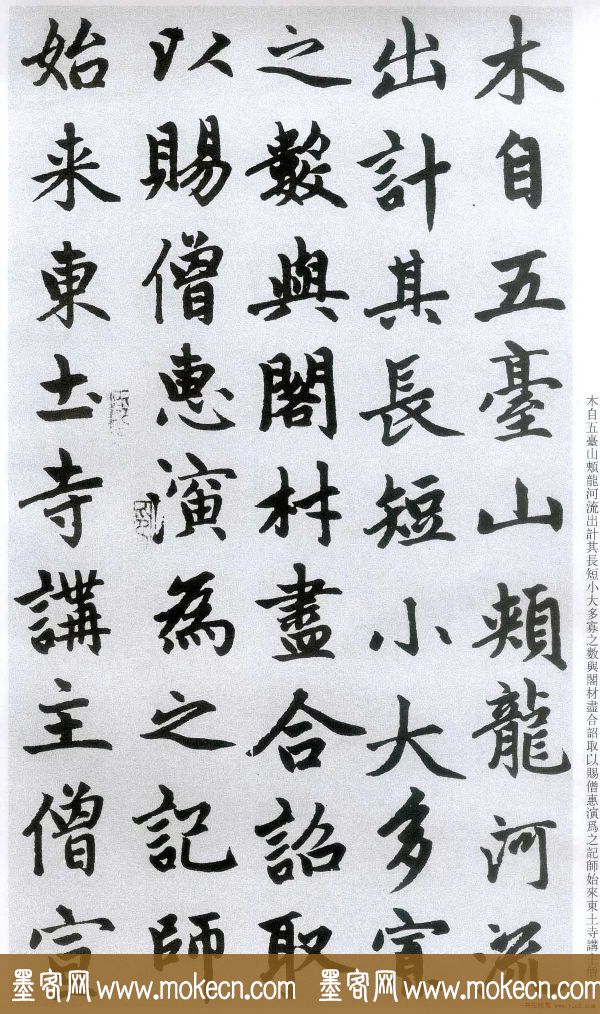 木自五臺山頰龍河流
出計其長短小大多寡
之數與閣材盡合詔取
以賜僧惠演為之記師
始来東土寺講主僧宣
木自五臺山頰龍河流出計其長短小大多寡之數與閣材盡合詔取以賜僧惠演爲之記師始來東土寺講主僧
墨客网 www.mokecn.com 墨客网 www.mokecn.com